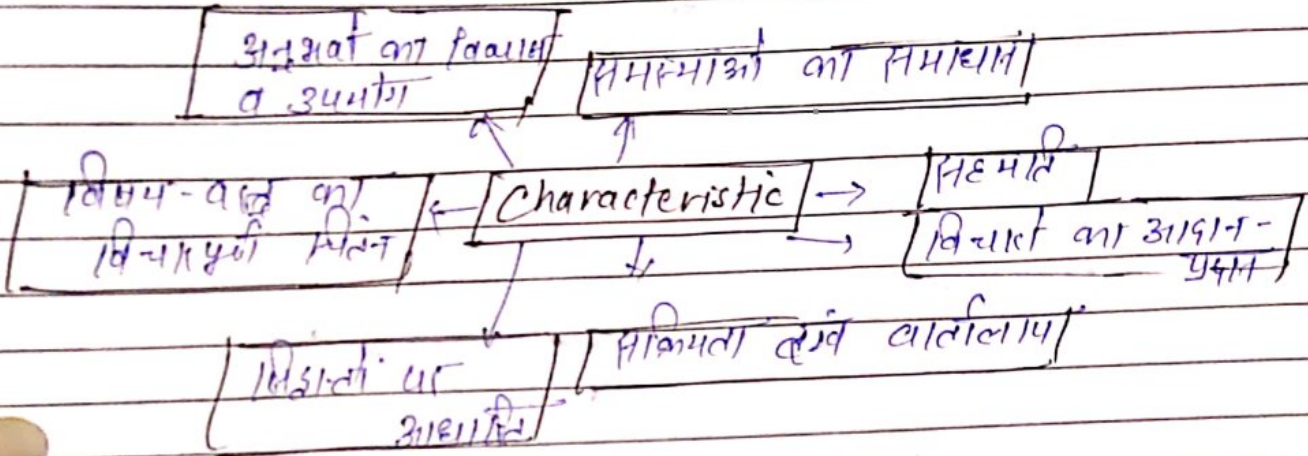 अनुभवों का विकास
व उपयोग
समस्याओं का समाधान
विषय-वस्तु का
विचारपूर्ण चिंतन
Characteristic
सहमति
विचारों का आदान-
प्रदान
सिद्धान्तों पर
आधारित
सक्रियता एवं वार्तालाप